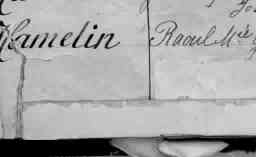 Hamelin Raoul Mie